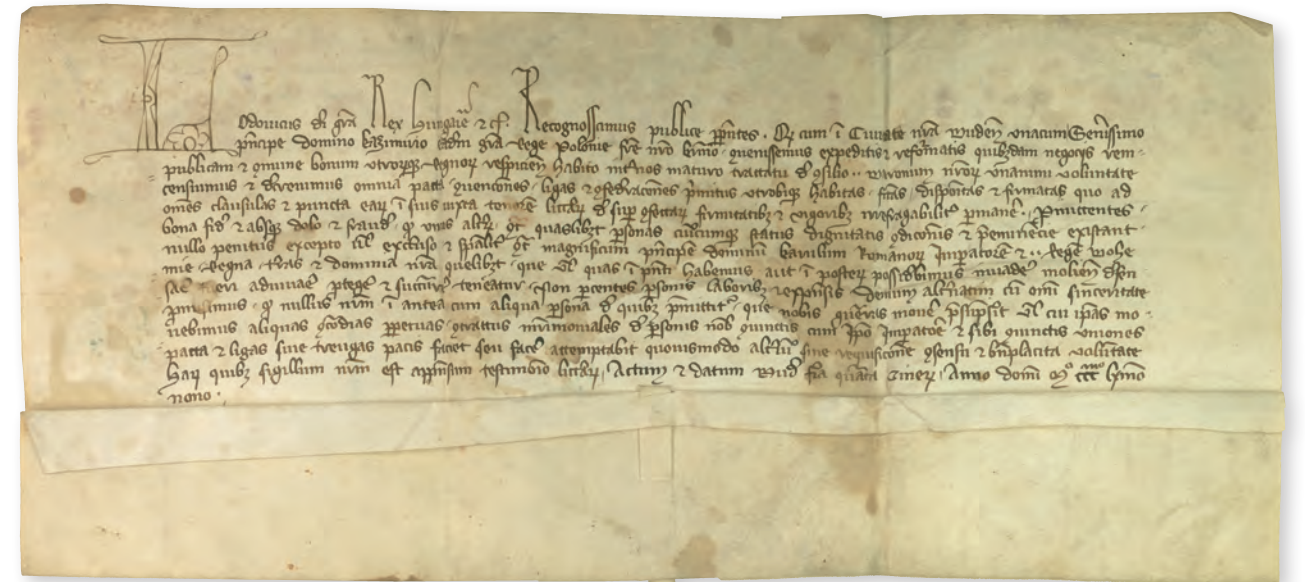 Lodouicus di gra Rex Hungarie et cet. Recognoscimus publice presentes. Quod cum i Ciuitate nra Buden unacum Serenissimo
principe domino Kazimirio eadem gra Rege Polonie fre nro krimo conuenissemus expeditis et reformatis quibusdam negocijs rem
publicam et comune bonum utrorumque regnorum respicien habito inter nos maturo tractatu de consilio Baronum nrorum unanimi voluntate
censuimus et decreuimus omnia pacta conuenciones ligas et confederaciones primitus utrobique habitas fctas disponitas et firmatas quo ad
omes clausulas et puncta earum i suis iuxta tenore litterarum desuper confectarum firmitatibus et vigoribus irrefragabiliter permanere. Promittentes
bona fide et absque dolo et fraude quod unus alterum contra quaslibet personas cuiuscumque status dignitatis condicionis et preminencie existant
nullo penitus excepto uel excluso et specialiter contra magnificum principe dominum Karulum Romanorum Imperatore et Rege Bohe
mie Regna terras et dominia nra quelibet que uel quas i presenti habemus aut i posterum possidebimus inuadere molien defen
sare et ei adiuuare protegere et succurrere teneatur. Non parcentes personis laboribus et expensis. Demum alternatim cum omi sinceritate
promisimus quod nullus nrum i antea cum aliqua persona de quibus premittitur que nobis guerras mouere presumpserit uel cui ipsas mo
uebimus aliquas concordias perpetuas contractus matrimoniales de personis nobis coniunctis cum ipso Imperatore et sibi coniunctis uniones
pacta et ligas siue treugas pacis faciet seu facere attemptabit quouismodo alterius sine requisicione consensu et beneplacita voluntate
Harum quibus sigillum nrum est appensum testimonio litterarum. Actum et datum Bude feria quarta Cinerum Anno domi Mº CCCmo lximo
nono.